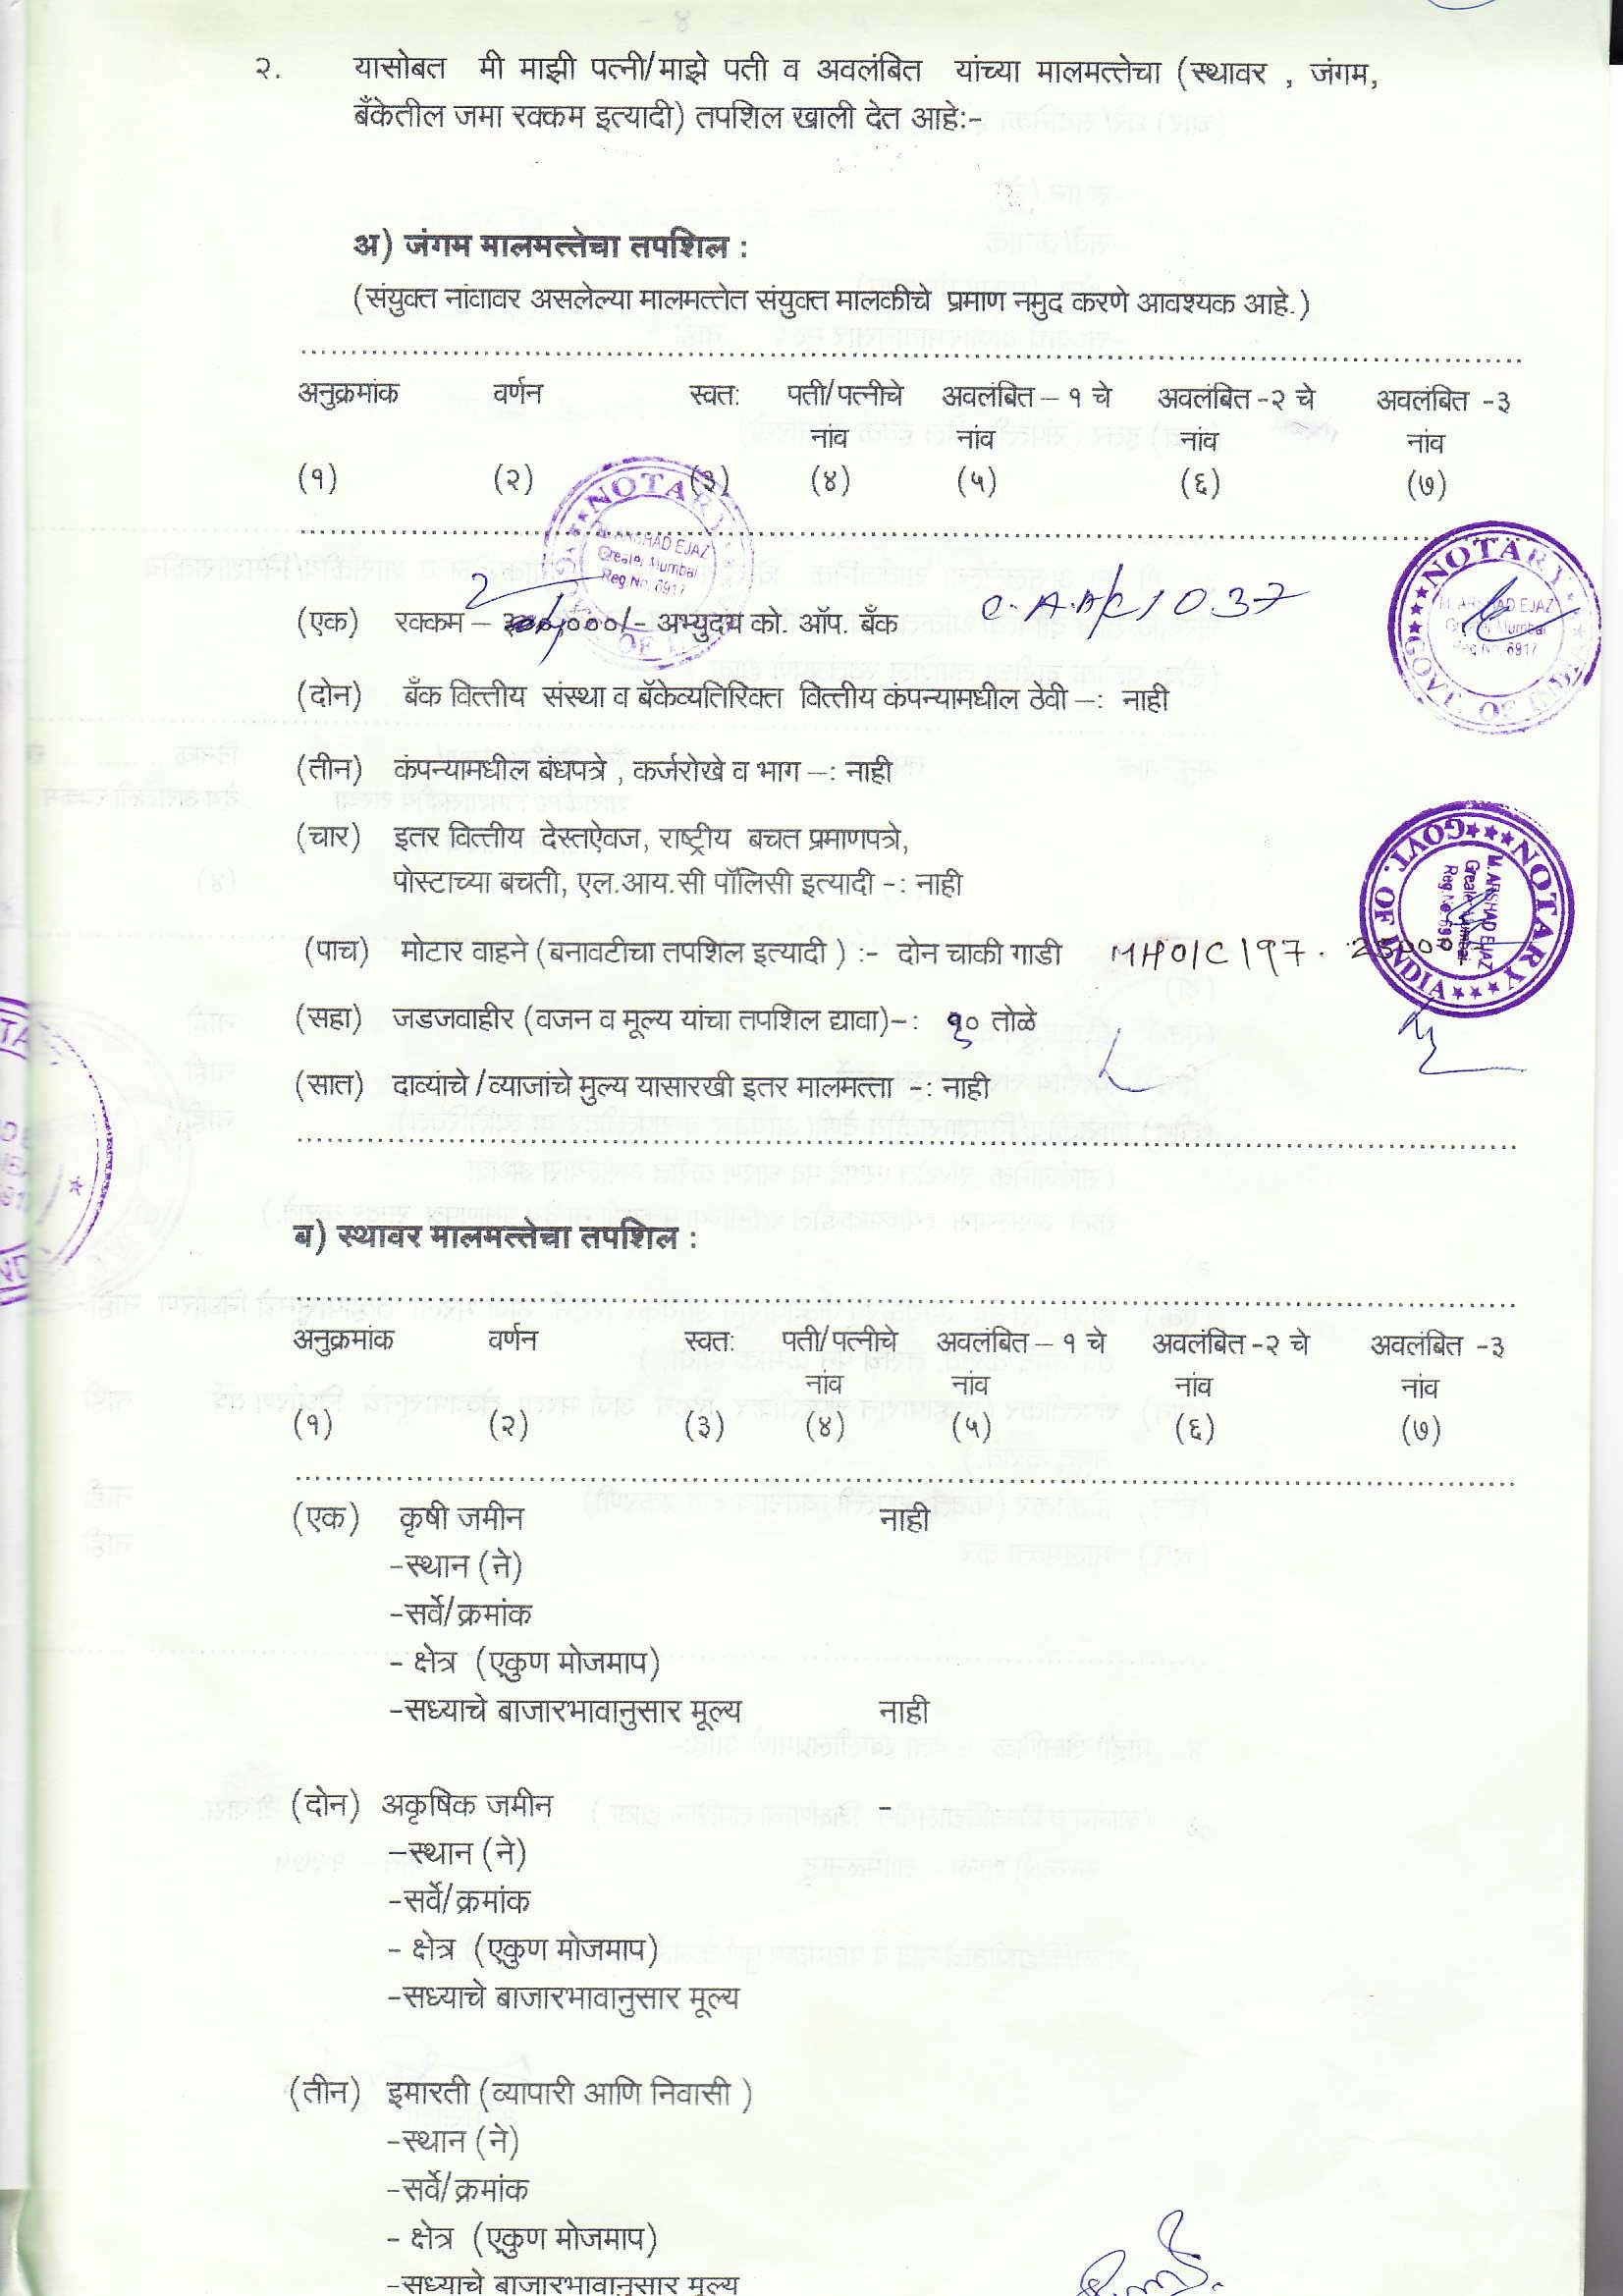 २. यासोबत मी माझी पत्नी/माझे पती व अवलंबित यांच्या मालमत्तेचा (स्थावर , जंगम,
बँकेतील जमा रक्कम इत्यादी) तपशिल खाली देत आहे:-
अ) जंगम मालमत्तेचा तपशिल :
(संयुक्त नांवावर असलेल्या मालमत्तेत संयुक्त मालकीचे प्रमाण नमुद करणे आवश्यक आहे.)
अनुक्रमांक वर्णन स्वत: पती/पत्नीचे अवलंबित – १ चे अवलंबित -२ चे अवलंबित -३
नांव नांव नांव नांव
(१) (२) (३) (४) (५) (६) (७)
NOTARY
M. ARSHAD EJAZ
Greater Mumbai
Reg.No. 6917
(एक) रक्कम – अभ्युदय को. ऑप. बँक
NOTARY
M. ARSHAD EJAZ
Greater Mumbai
Reg.No. 6917
GOVT. OF INDIA
(दोन) बँक वित्तीय संस्था व बॅकेव्यतिरिक्त वित्तीय कंपन्यामधील ठेवी –: नाही
(तीन) कंपन्यामधील बंधपत्रे , कर्जरोखे व भाग –: नाही
(चार) इतर वित्तीय देस्तऐवज, राष्ट्रीय बचत प्रमाणपत्रे,
पोस्टाच्या बचती, एल.आय.सी पॉलिसी इत्यादी -: नाही
NOTARY
M. ARSHAD EJAZ
Greater Mumbai
Reg.No. 6917
GOVT. OF INDIA
(पाच) मोटार वाहने (बनावटीचा तपशिल इत्यादी ) :- दोन चाकी गाडी
(सहा) जडजवाहीर (वजन व मूल्य यांचा तपशिल द्यावा)-: तोळे
(सात) दाव्यांचे /व्याजांचे मुल्य यासारखी इतर मालमत्ता -: नाही
ब) स्थावर मालमत्तेचा तपशिल :
अनुक्रमांक वर्णन स्वत: पती/पत्नीचे अवलंबित – १ चे अवलंबित -२ चे अवलंबित -३
नांव नांव नांव नांव
(१) (२) (३) (४) (५) (६) (७)
(एक) कृषी जमीन नाही
-स्थान (ने)
-सर्वे/क्रमांक
- क्षेत्र (एकुण मोजमाप)
-सध्याचे बाजारभावानुसार मूल्य नाही
(दोन) अकृषिक जमीन -
–स्थान (ने)
-सर्वे/क्रमांक
- क्षेत्र (एकुण मोजमाप)
-सध्याचे बाजारभावानुसार मूल्य
(तीन) इमारती (व्यापारी आणि निवासी )
-स्थान (ने)
-सर्वे/क्रमांक
- क्षेत्र (एकुण मोजमाप)
-सध्याचे बाजारभावानुसार मूल्य